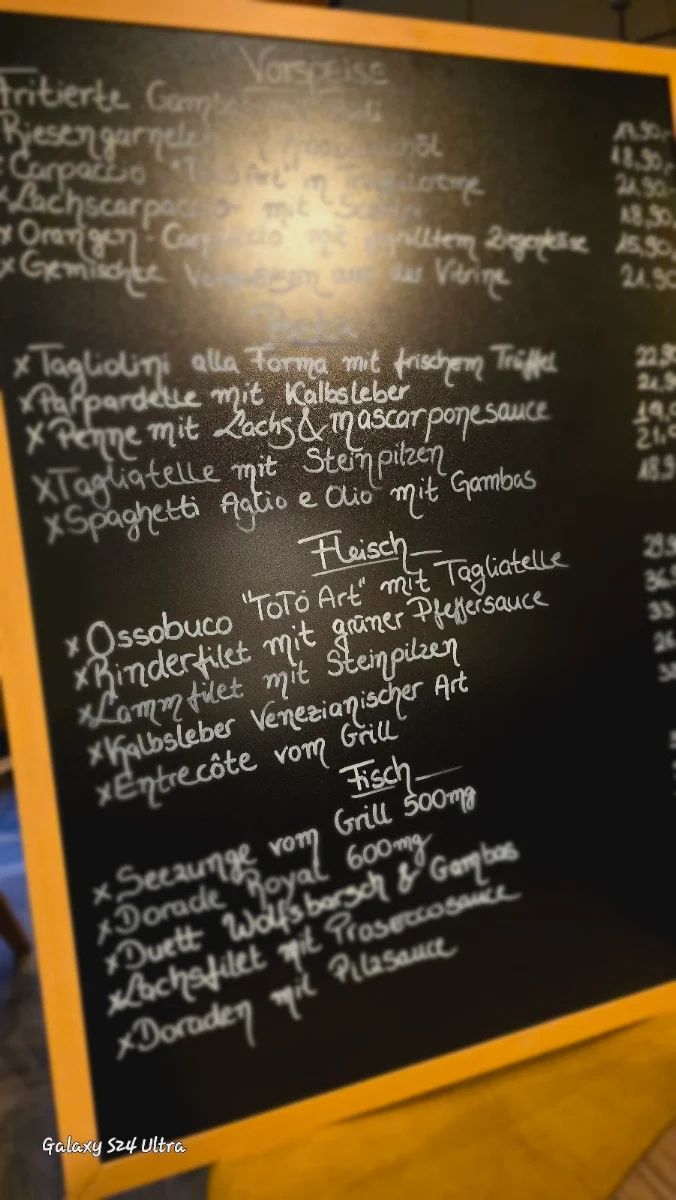 Vorspeise
Fritierte
Riesengarnelen
Carpaccio
Lachscarpaccio mit
x Orangen-Carpaccio mit gegrilltem Ziegenkäse 15,90,
x Gemischte Vorspeisen aus der Vitrine 21,90
Pasta
x Tagliolini alla Forma mit frischem Trüffel
x Parpardelle mit Kalbsleber
x Penne mit Lachs & mascarponesauce
x Tagliatelle mit Steinpilzen
x Spaghetti Aglio e Olio mit Gambas
Fleisch
x Ossobuco "ToTó Art" mit Tagliatelle
x Rinderfilet mit grüner Pfeffersauce
x Lammfilet mit Steinpilzen
x Kalbsleber Venezianischer Art
x Entrecôte vom Grill
Fisch
x Seezunge vom Grill 500mg
x Dorade Royal 600mg
x Duett Wolfsbarsch & Gambas
x Lachsfilet mit Proseccosauce
x Doraden mit Pilzsauce
Galaxy S24 Ultra